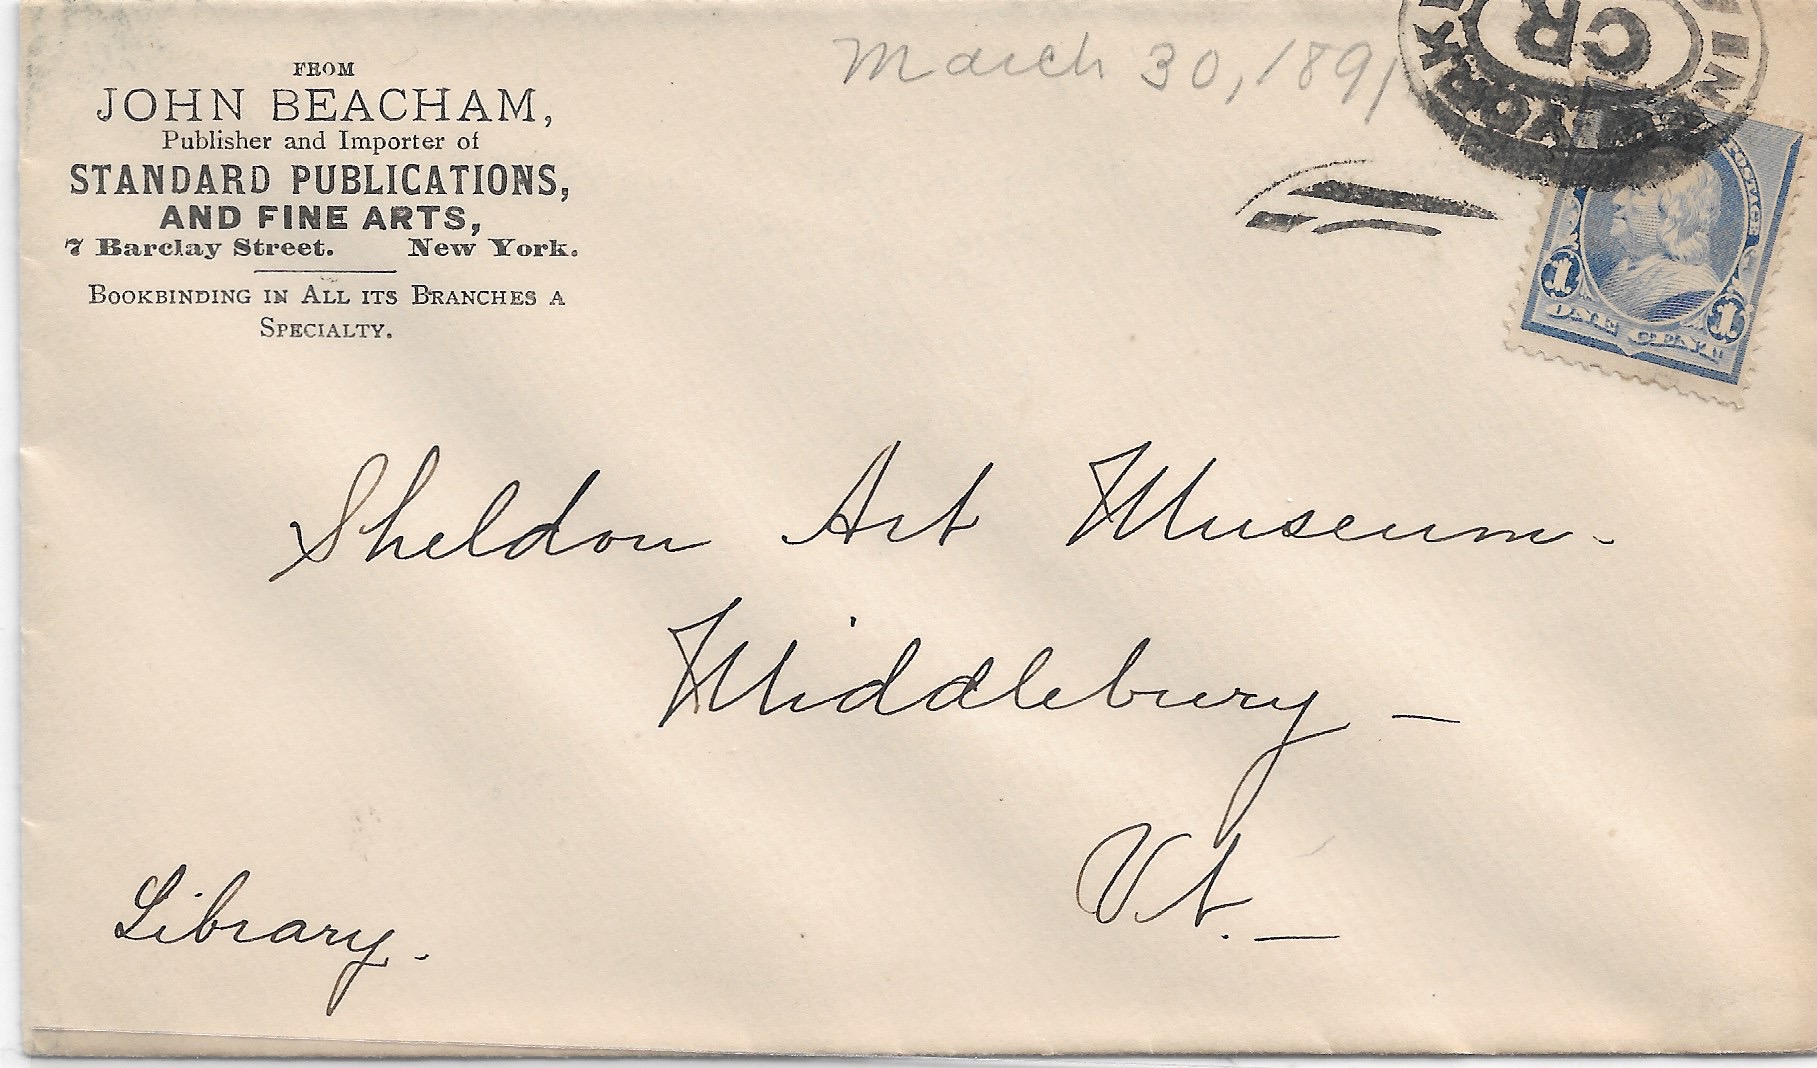 FROM
JOHN BEACHAM,
Publisher and Importer of
STANDARD PUBLICATIONS,
AND FINE ARTS,
7 Barclay Street. New York.
BOOKBINDING IN ALL ITS BRANCHES A
SPECIALTY.
March 30, 1891
YORK
CR
1 1
ONE CENT
Sheldon Art Museum.
Middlebury –
Vt. –
Library.